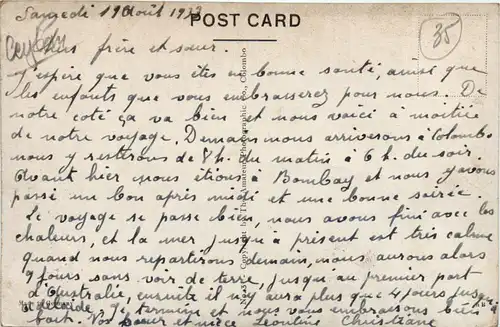 Samedi 19 Août 1933
POST CARD
35
Ceylan
Chers frère et sœur.
J'espère que vous êtes en bonne santé, ainsi que
les enfants que vous embrasserez pour nous. De
notre coté ça va bien et nous voici à moitiée
de notre voyage. Demain nous arriverons à Colombo
nous y resterons de 8 h. du matin à 6 h. du soir.
Avant hier nous étions à Bombay et nous y avons
passé un bon après midi et une bonne soirée.
Le voyage se passe bien, nous avons fini avec les
chaleurs, et la mer jusqu'à présent est très calme
quand nous repartirons demain, nous aurons alors
9 jours sans voir de terre, jusqu'au premier port
d'Australie, ensuite il n'y aura plus que 4 jours jusqu'à
Adelaide. Je termine et nous vous embrassons bien
fort. Vos sœur et nièce Léontine Christiane
Copyright by The Amateur Photographic Co., Colombo